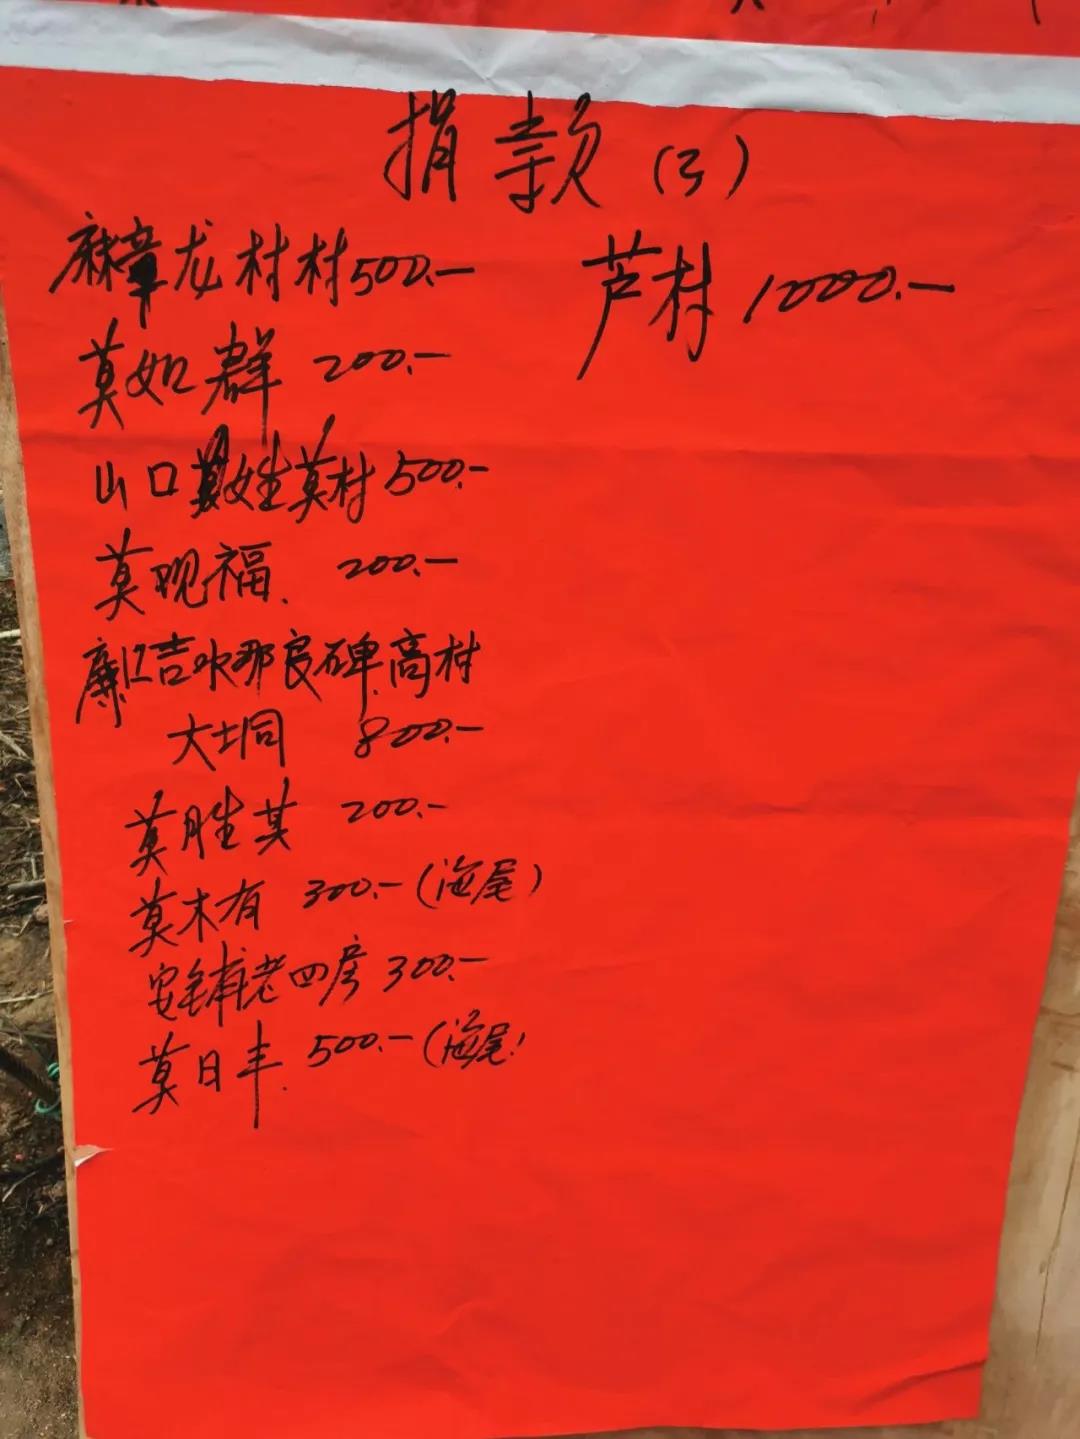 捐款(3)
麻章龙村村500.—
芦村 1000.—
莫如群 200.—
山口莫姓莫村500.—
莫观福. 200.—
廉江吉水那良碑.高村
大垌 800.—
莫胜其 200.—
莫木有 300.—(海尾)
安铺老四房300.—
莫日丰. 500.—(海尾)